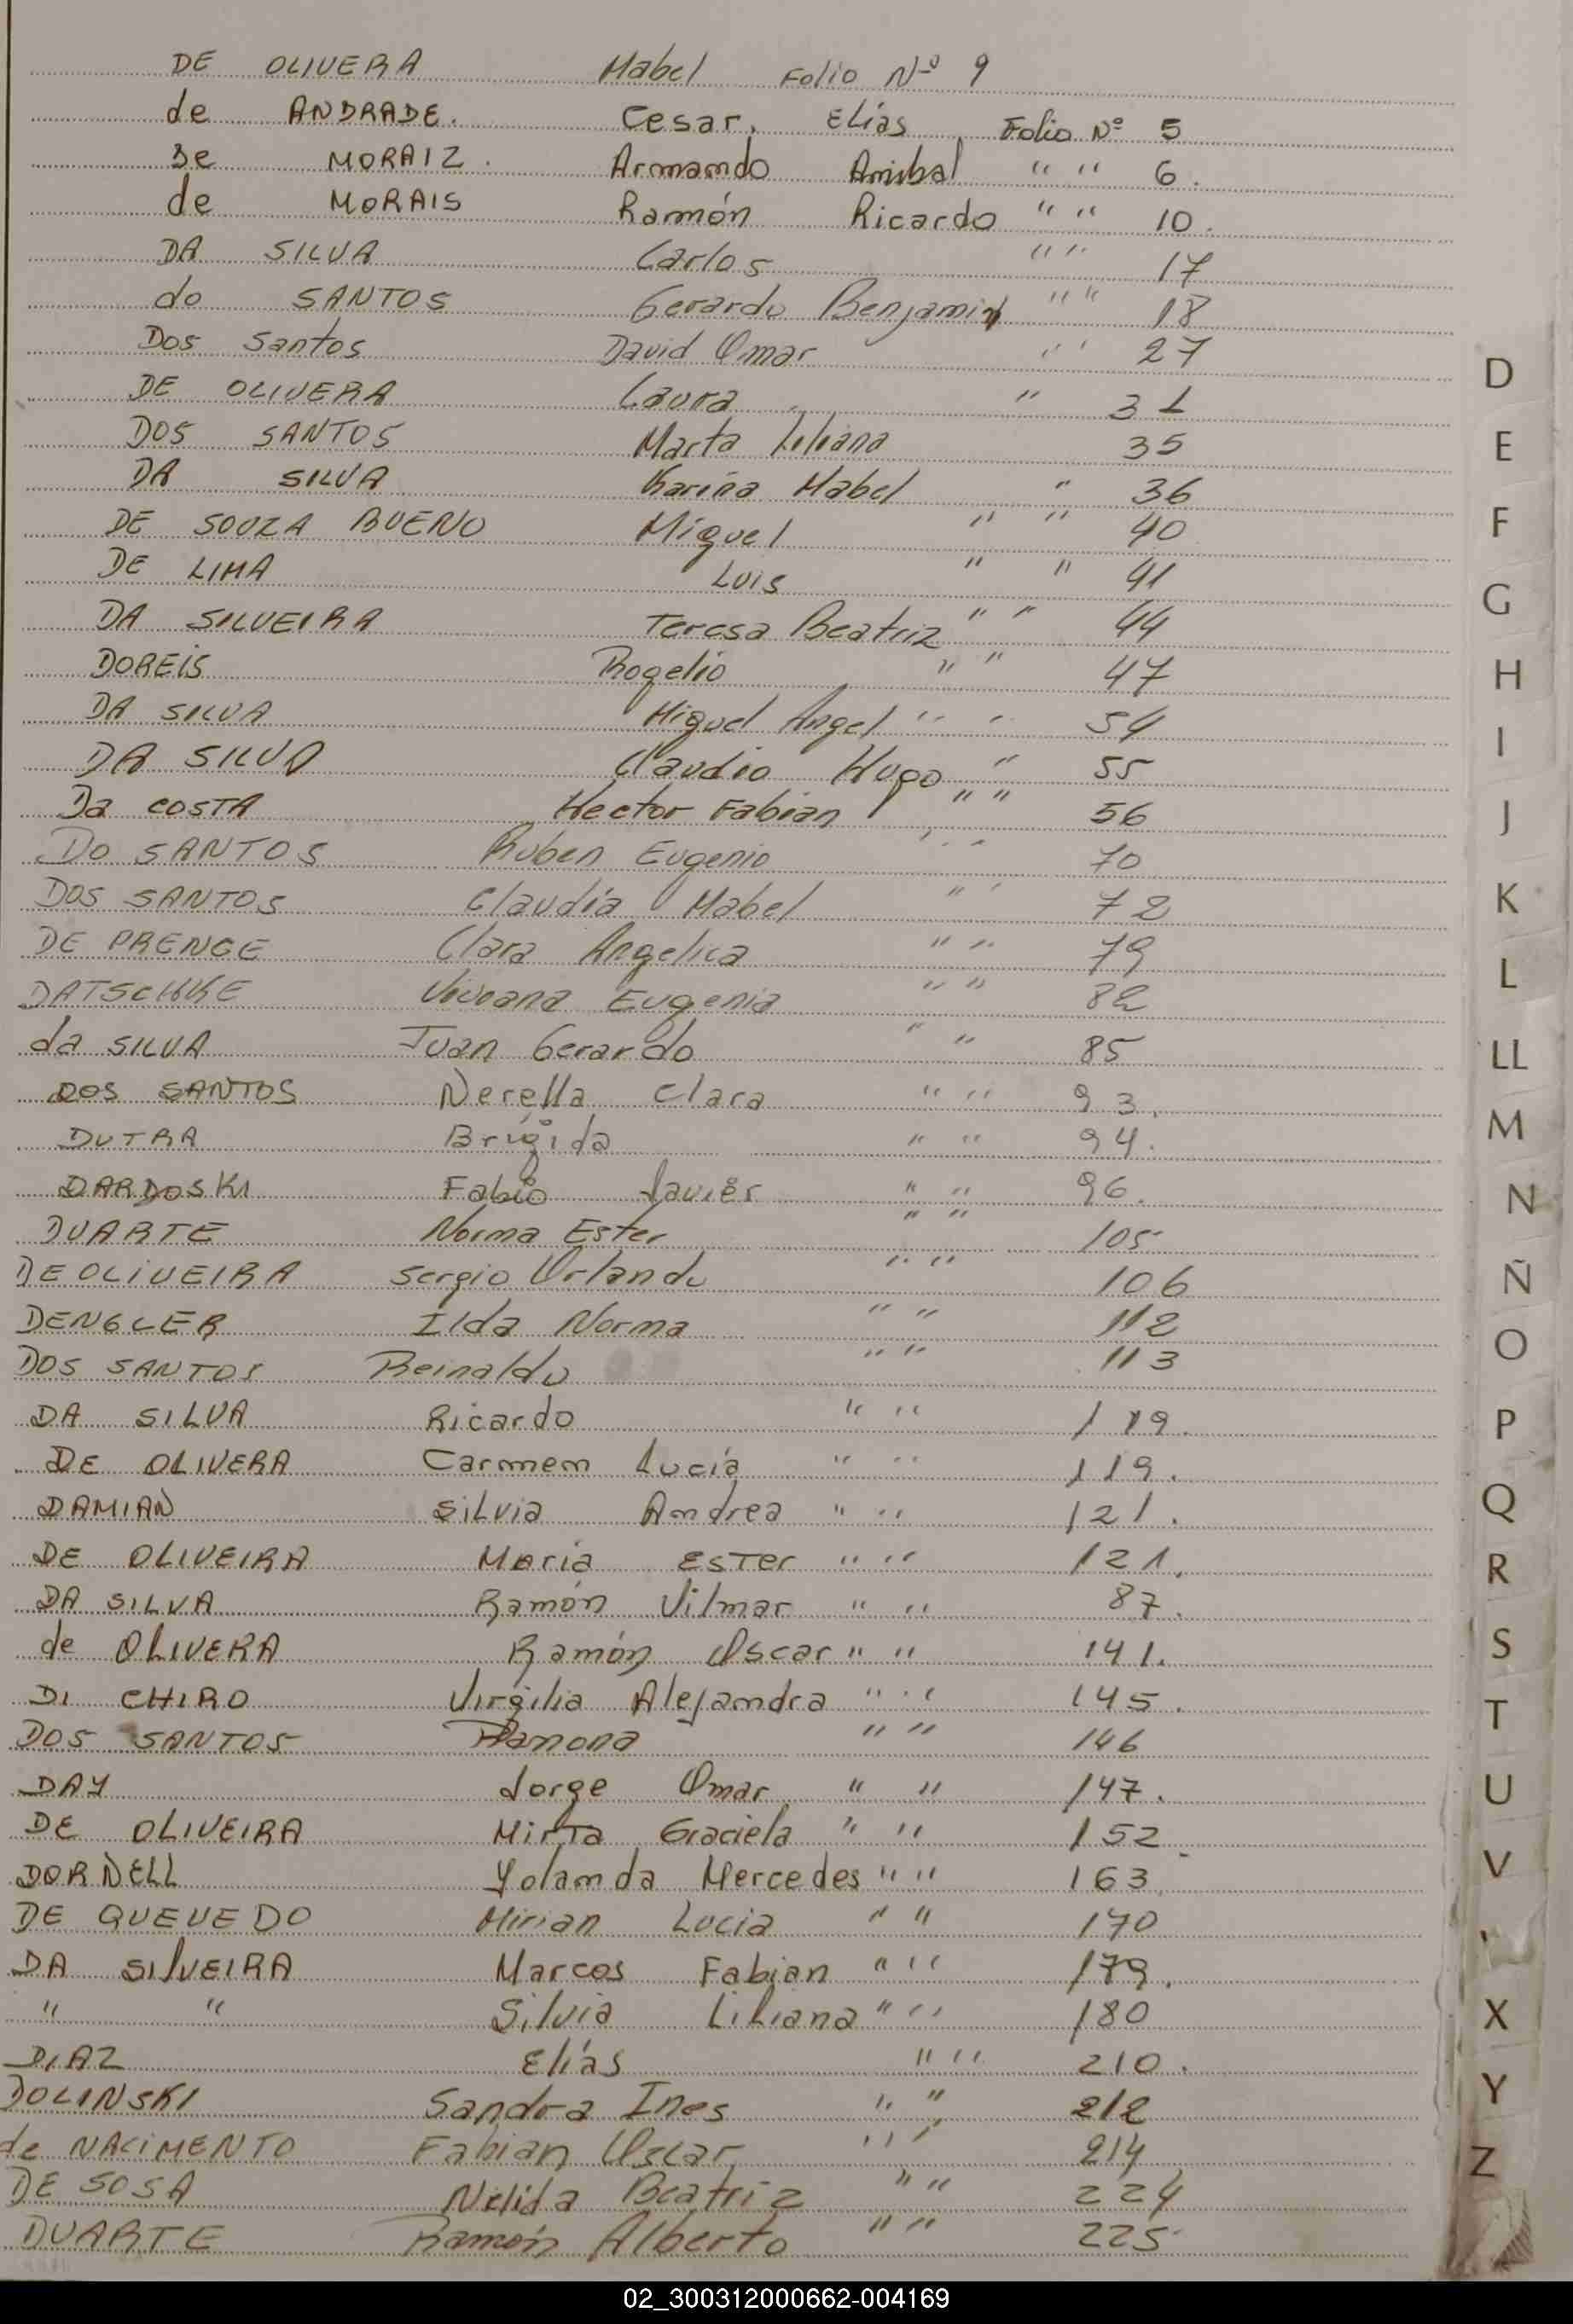 DE OLIVERA Mabel Folio Nº 9
de ANDRADE. Cesar, Elías Folio Nº 5
De MORAIZ. Armando Anibal " " 6.
de MORAIS Ramón Ricardo " " 10.
DA SILVA Carlos " " 17
do SANTOS Gerardo Benjamin " " 18
Dos Santos David Omar " " 27
DE OLIVERA Laura " 31
DOS SANTOS Marta Liliana 35
DA SILVA Karina Mabel " 36
DE SOUZA BUENO Miguel " " 40
DE LIMA Luis " " 41
DA SILVEIRA Teresa Beatriz " " 44
DOREIS Rogelio " " 47
DA SILVA Miguel Angel " " 54
DA SILVA Claudio Hugo " 55
Da COSTA Hector Fabian " " 56
DO SANTOS Ruben Eugenio " " 70
DOS SANTOS Claudia Mabel " " 72
DE PRENGE Clara Angelica " " 79
DATSCHKE Viviana Eugenia " " 82
da SILVA Juan Gerardo " " 85
DOS SANTOS Nerella Clara " " 93.
DUTRA Brígida " " 94.
DARDOSKI Fabio Javier " " 96.
DUARTE Norma Ester " " 105
DE OLIVEIRA Sergio Orlando " " 106
DENGLER Ilda Norma " " 112
DOS SANTOS Reinaldo " " 113
DA SILVA Ricardo " " 119.
DE OLIVERA Carmem Lucía " " 119.
DAMIAN Silvia Andrea " " 121.
DE OLIVEIRA María ESTER " " 121.
DA SILVA Ramón Vilmar " " 87.
de OLIVERA Ramón Oscar " " 141.
DI CHIRO Virgilia Alejandra " " 145.
DOS SANTOS Ramona " " 146
DAY Jorge Omar " " 147.
DE OLIVEIRA Mirta Graciela " " 152.
DORNELL Yolanda Mercedes " " 163.
DE QUEVEDO Mirian Lucia " " 170
DA SilVEIRA Marcos Fabian " " 179.
" " Silvia Liliana " " 180
DIAZ Elías " " 210.
DOLINSKI Sandra Ines " " 212
de NACIMENTO Fabian Oscar " " 214
DE SOSA Nelida Beatriz " " 224
DUARTE Ramón Alberto " " 225
D
E
F
G
H
I
J
K
L
LL
M
N
Ñ
O
P
Q
R
S
T
U
V
X
Y
Z
02_300312000662-004169